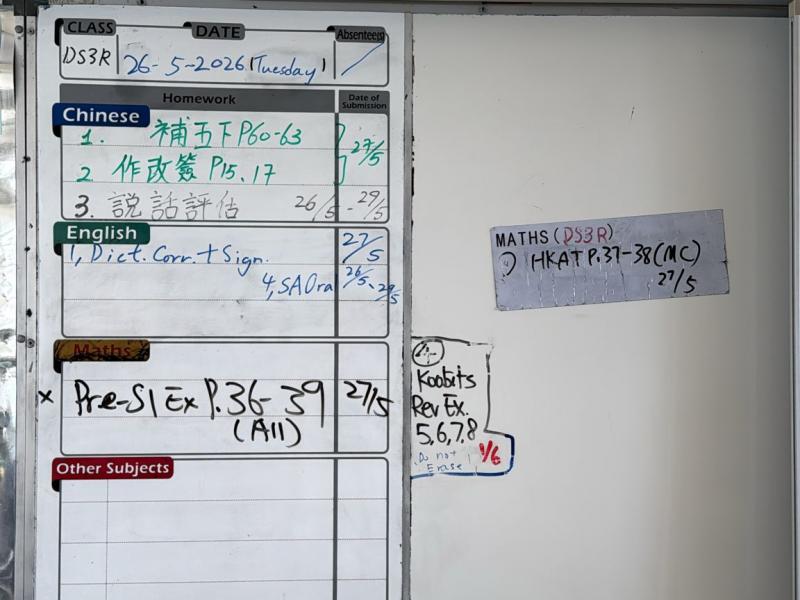 CLASS DATE Absentees
DS3R 26-5-2026 (Tuesday) /
Homework Date of Submission
Chinese
1. 補五下 P60-63
27/5
2. 作改簽 P15.17
3. 説話評估 26/5 - 29/5
English
1, Dict. Corr. + Sign. 27/5
4, SA Oral 26/5 - 29/5
Maths
x Pre-S1 Ex P.36-39 27/5
(All)
Other Subjects
MATHS (DS3R)
HKAT P.37-38 (MC)
27/5
Koobits
Rev Ex.
5,6,7,8
Do not
Erase
1/6